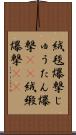 絨毯爆撃じ
ゅうたん爆
撃絨緞
爆撃